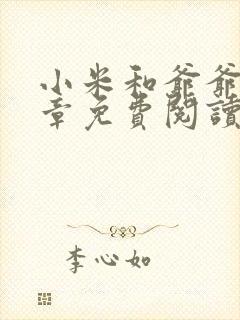 小米和爺爺
章免費閱讀
李心如